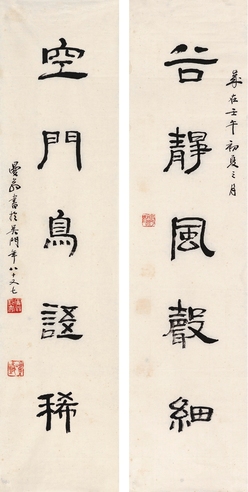 歲在壬午初夏之月
谷靜風聲細
空門鳥語稀
曼翁書於吳門年八十又七